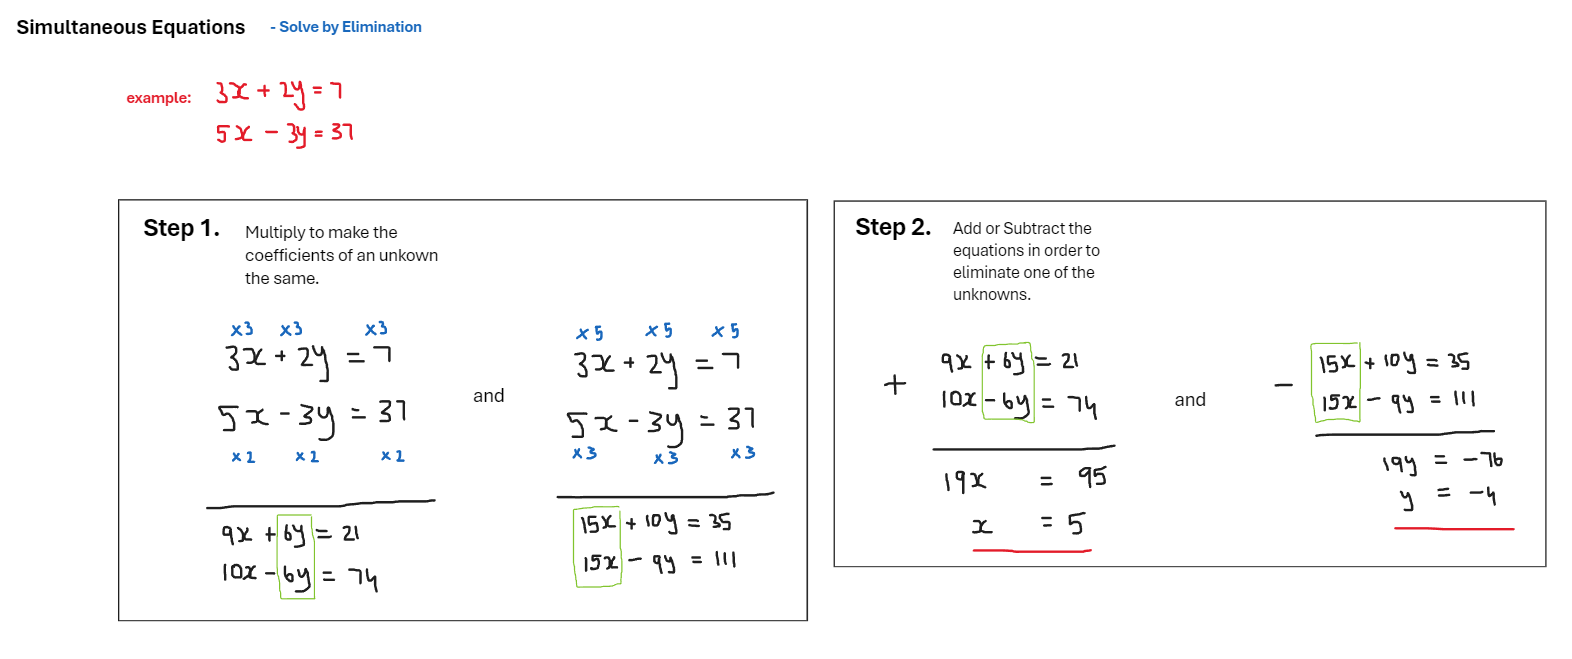 Simultaneous Equations - Solve by Elimination
example: 3x + 2y = 7
5x - 3y = 37
Step 1. Multiply to make the
coefficients of an unkown
the same.
x3 x3 x3
3x + 2y = 7
5x - 3y = 37
x2 x2 x2
9x + 6y = 21
10x - 6y = 74
and
x5 x5 x5
3x + 2y = 7
5x - 3y = 37
x3 x3 x3
15x + 10y = 35
15x - 9y = 111
Step 2. Add or Subtract the
equations in order to
eliminate one of the
unknowns.
+ 9x + 6y = 21
10x - 6y = 74
19x = 95
x = 5
and
- 15x + 10y = 35
15x - 9y = 111
19y = -76
y = -4